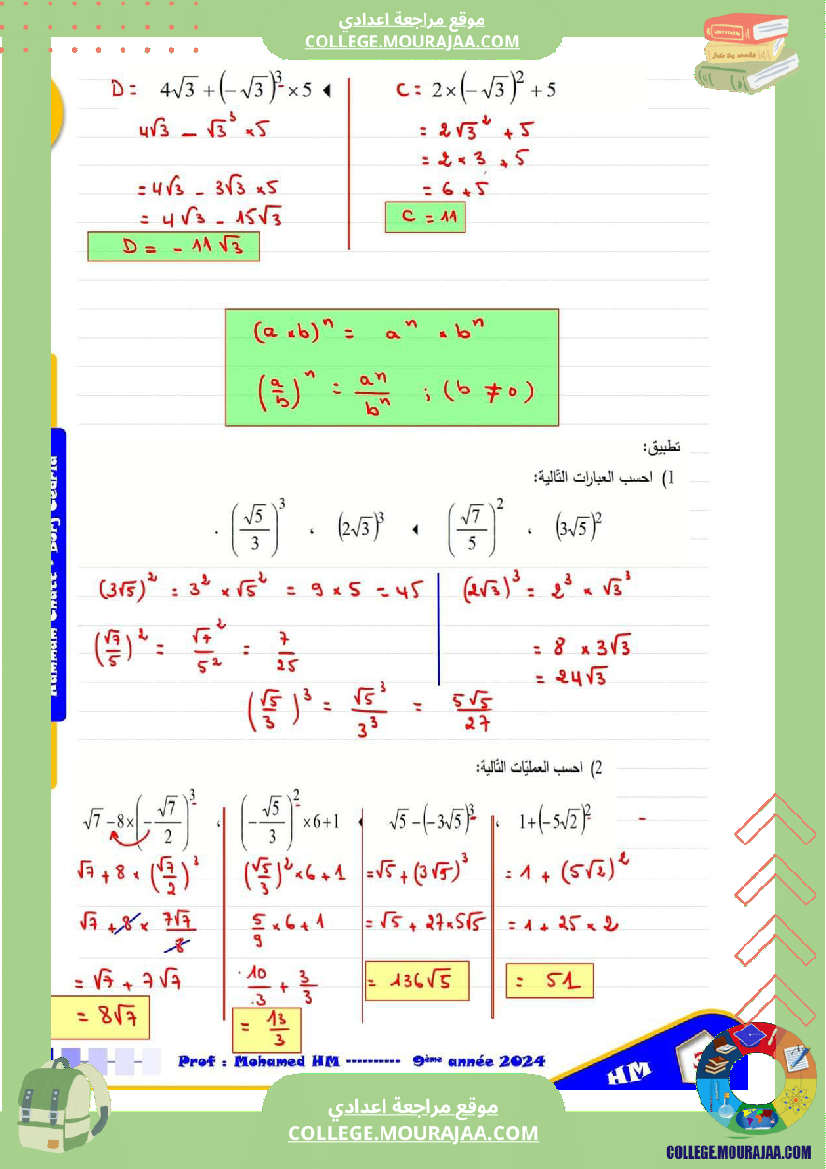 موقع مراجعة اعدادي
COLLEGE.MOURAJAA.COM
D = 4√3 + (−√3)³ × 5
4√3 − √3³ × 5
= 4√3 − 3√3 × 5
= 4√3 − 15√3
D = − 11√3
C = 2 × (−√3)² + 5
= 2√3² + 5
= 2 × 3 + 5
= 6 + 5
C = 11
(a × b)ⁿ = aⁿ × bⁿ
(a/b)ⁿ = aⁿ/bⁿ ; (b ≠ 0)
تطبيق:
1) احسب العبارات التّالية:
(3√5)² ، (√7/5)² ، (2√3)³ ، (√5/3)³ .
(3√5)² = 3² × √5² = 9 × 5 = 45
(√7/5)² = √7²/5² = 7/25
(2√3)³ = 2³ × √3³
= 8 × 3√3
= 24√3
(√5/3)³ = √5³/3³ = 5√5/27
2) احسب العمليّات التّالية:
√7 − 8 × (−√7/2)³
√7 + 8 × (√7/2)³
√7 + 8 × 7√7/8
= √7 + 7√7
= 8√7
(−√5/3)² × 6 + 1
(√5/3)² × 6 + 1
5/9 × 6 + 1
10/3 + 3/3
= 13/3
√5 − (−3√5)³
= √5 + (3√5)³
= √5 + 27 × 5√5
= 136√5
1 + (−5√2)²
= 1 + (5√2)²
= 1 + 25 × 2
= 51
Prof : Mohamed HM ---------- 9ème année 2024
HM
موقع مراجعة اعدادي
COLLEGE.MOURAJAA.COM
COLLEGE.MOURAJAA.COM